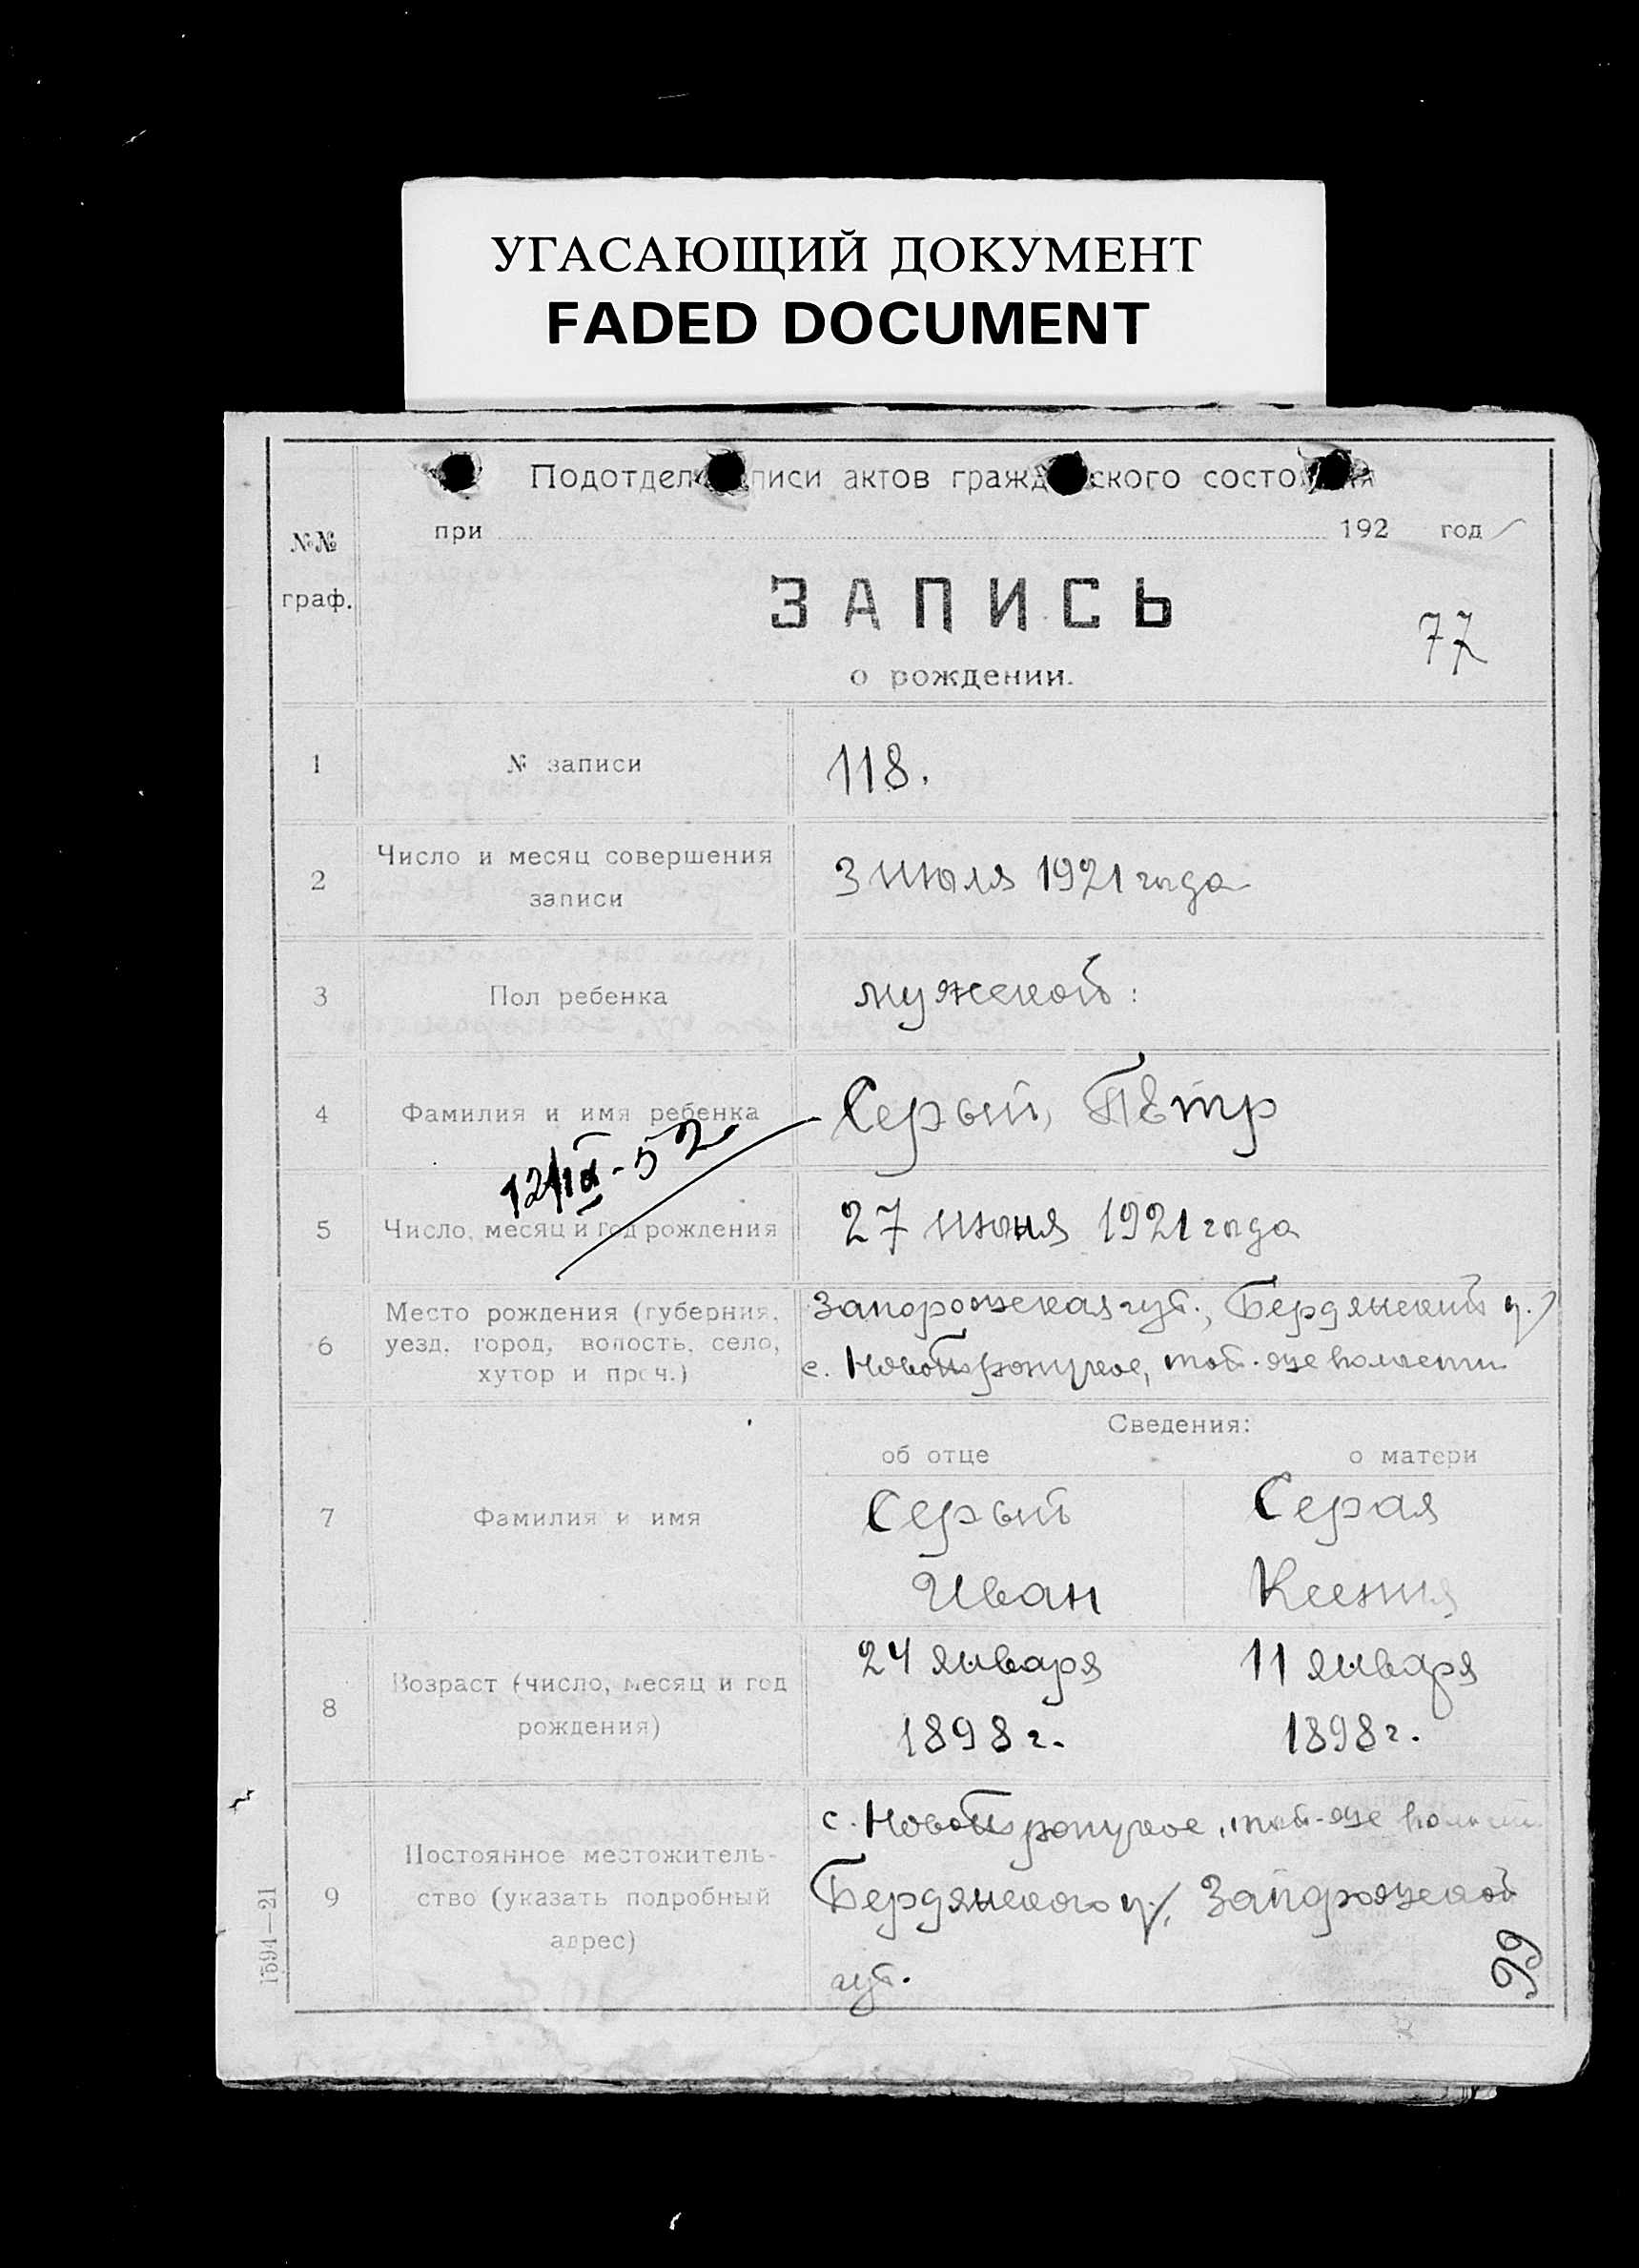 УГАСАЮЩИЙ ДОКУМЕНТ
FADED DOCUMENT
Подотдел записи актов гражданского состояния
при 192 год
№№
граф.
ЗАПИСЬ
77
о рождении.
1 № записи 118.
2 Число и месяц совершения
записи
3 июля 1921 года
3 Пол ребенка мужской:
4 Фамилия и имя ребенка Серый, Пётр
12/IX-52
5 Число, месяц и год рождения 27 июня 1921 года
6 Место рождения (губерния,
уезд, город, волость, село,
хутор и проч.)
Запорожская губ., Бердянский у.,
с. Новотроицкое, той-же волости
Сведения:
об отце о матери
7 Фамилия и имя
Серый Серая
Иван Ксения
8 Возраст (число, месяц и год
рождения)
24 января 11 января
1898 г. 1898 г.
9 Постоянное местожитель-
ство (указать подробный
адрес)
с. Новотроицкое, той-же волости
Бердянского у., Запорожской
губ.
99
1594—21